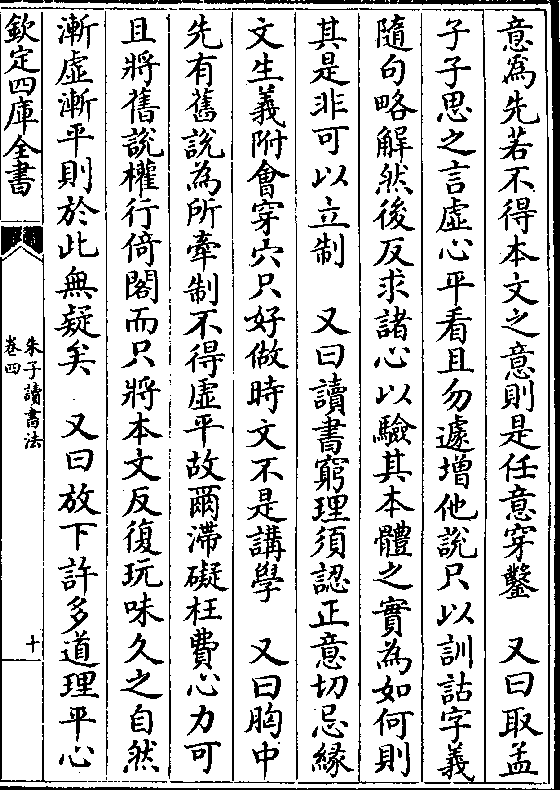 意為先若不得本文之意則是任意穿鑿　又曰取孟
子子思之言虛心平看且勿遽增他說只以訓詁字義
隨句略解然後反求諸心以驗其本體之實為如何則
其是非可以立制　又曰讀書窮理須認正意切忌緣
文生義附會穿穴只好做時文不是講學　又曰胸中
先有舊說為所牽制不得虛平故爾滯礙枉費心力可
且將舊說權行倚閣而只將本文反復玩味久之自然
漸虛漸平則於此無疑矣　又曰放下許多道理平心
欽定四庫全書
朱子讀書法
卷四
十